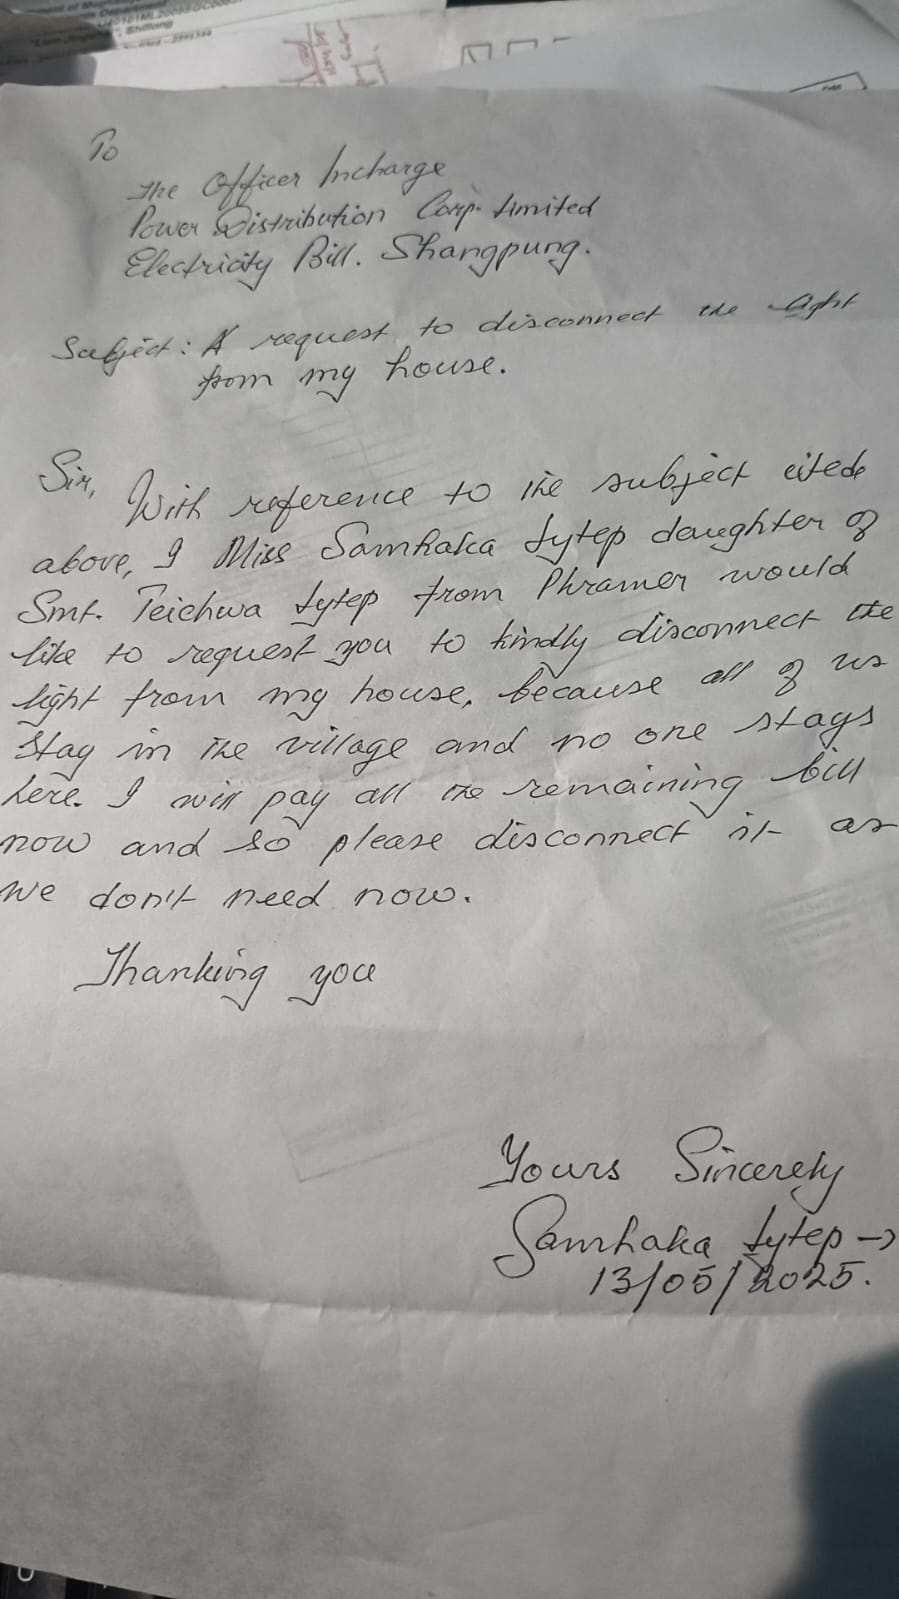 To
The Officer Incharge
Power Distribution Corp. Limited
Electricity Bill. Shangpung.
Subject: A request to disconnect the light
from my house.
Sir,
With reference to the subject cited
above, I Miss Samhaka Lytep daughter of
Smt. Teichwa Lytep from Phramer would
like to request you to kindly disconnect the
light from my house, because all of us
stay in the village and no one stays
here. I will pay all the remaining bill
now and so please disconnect it as
we don't need now.
Thanking you
Yours Sincerely
Samhaka Lytep →
13/05/2025.